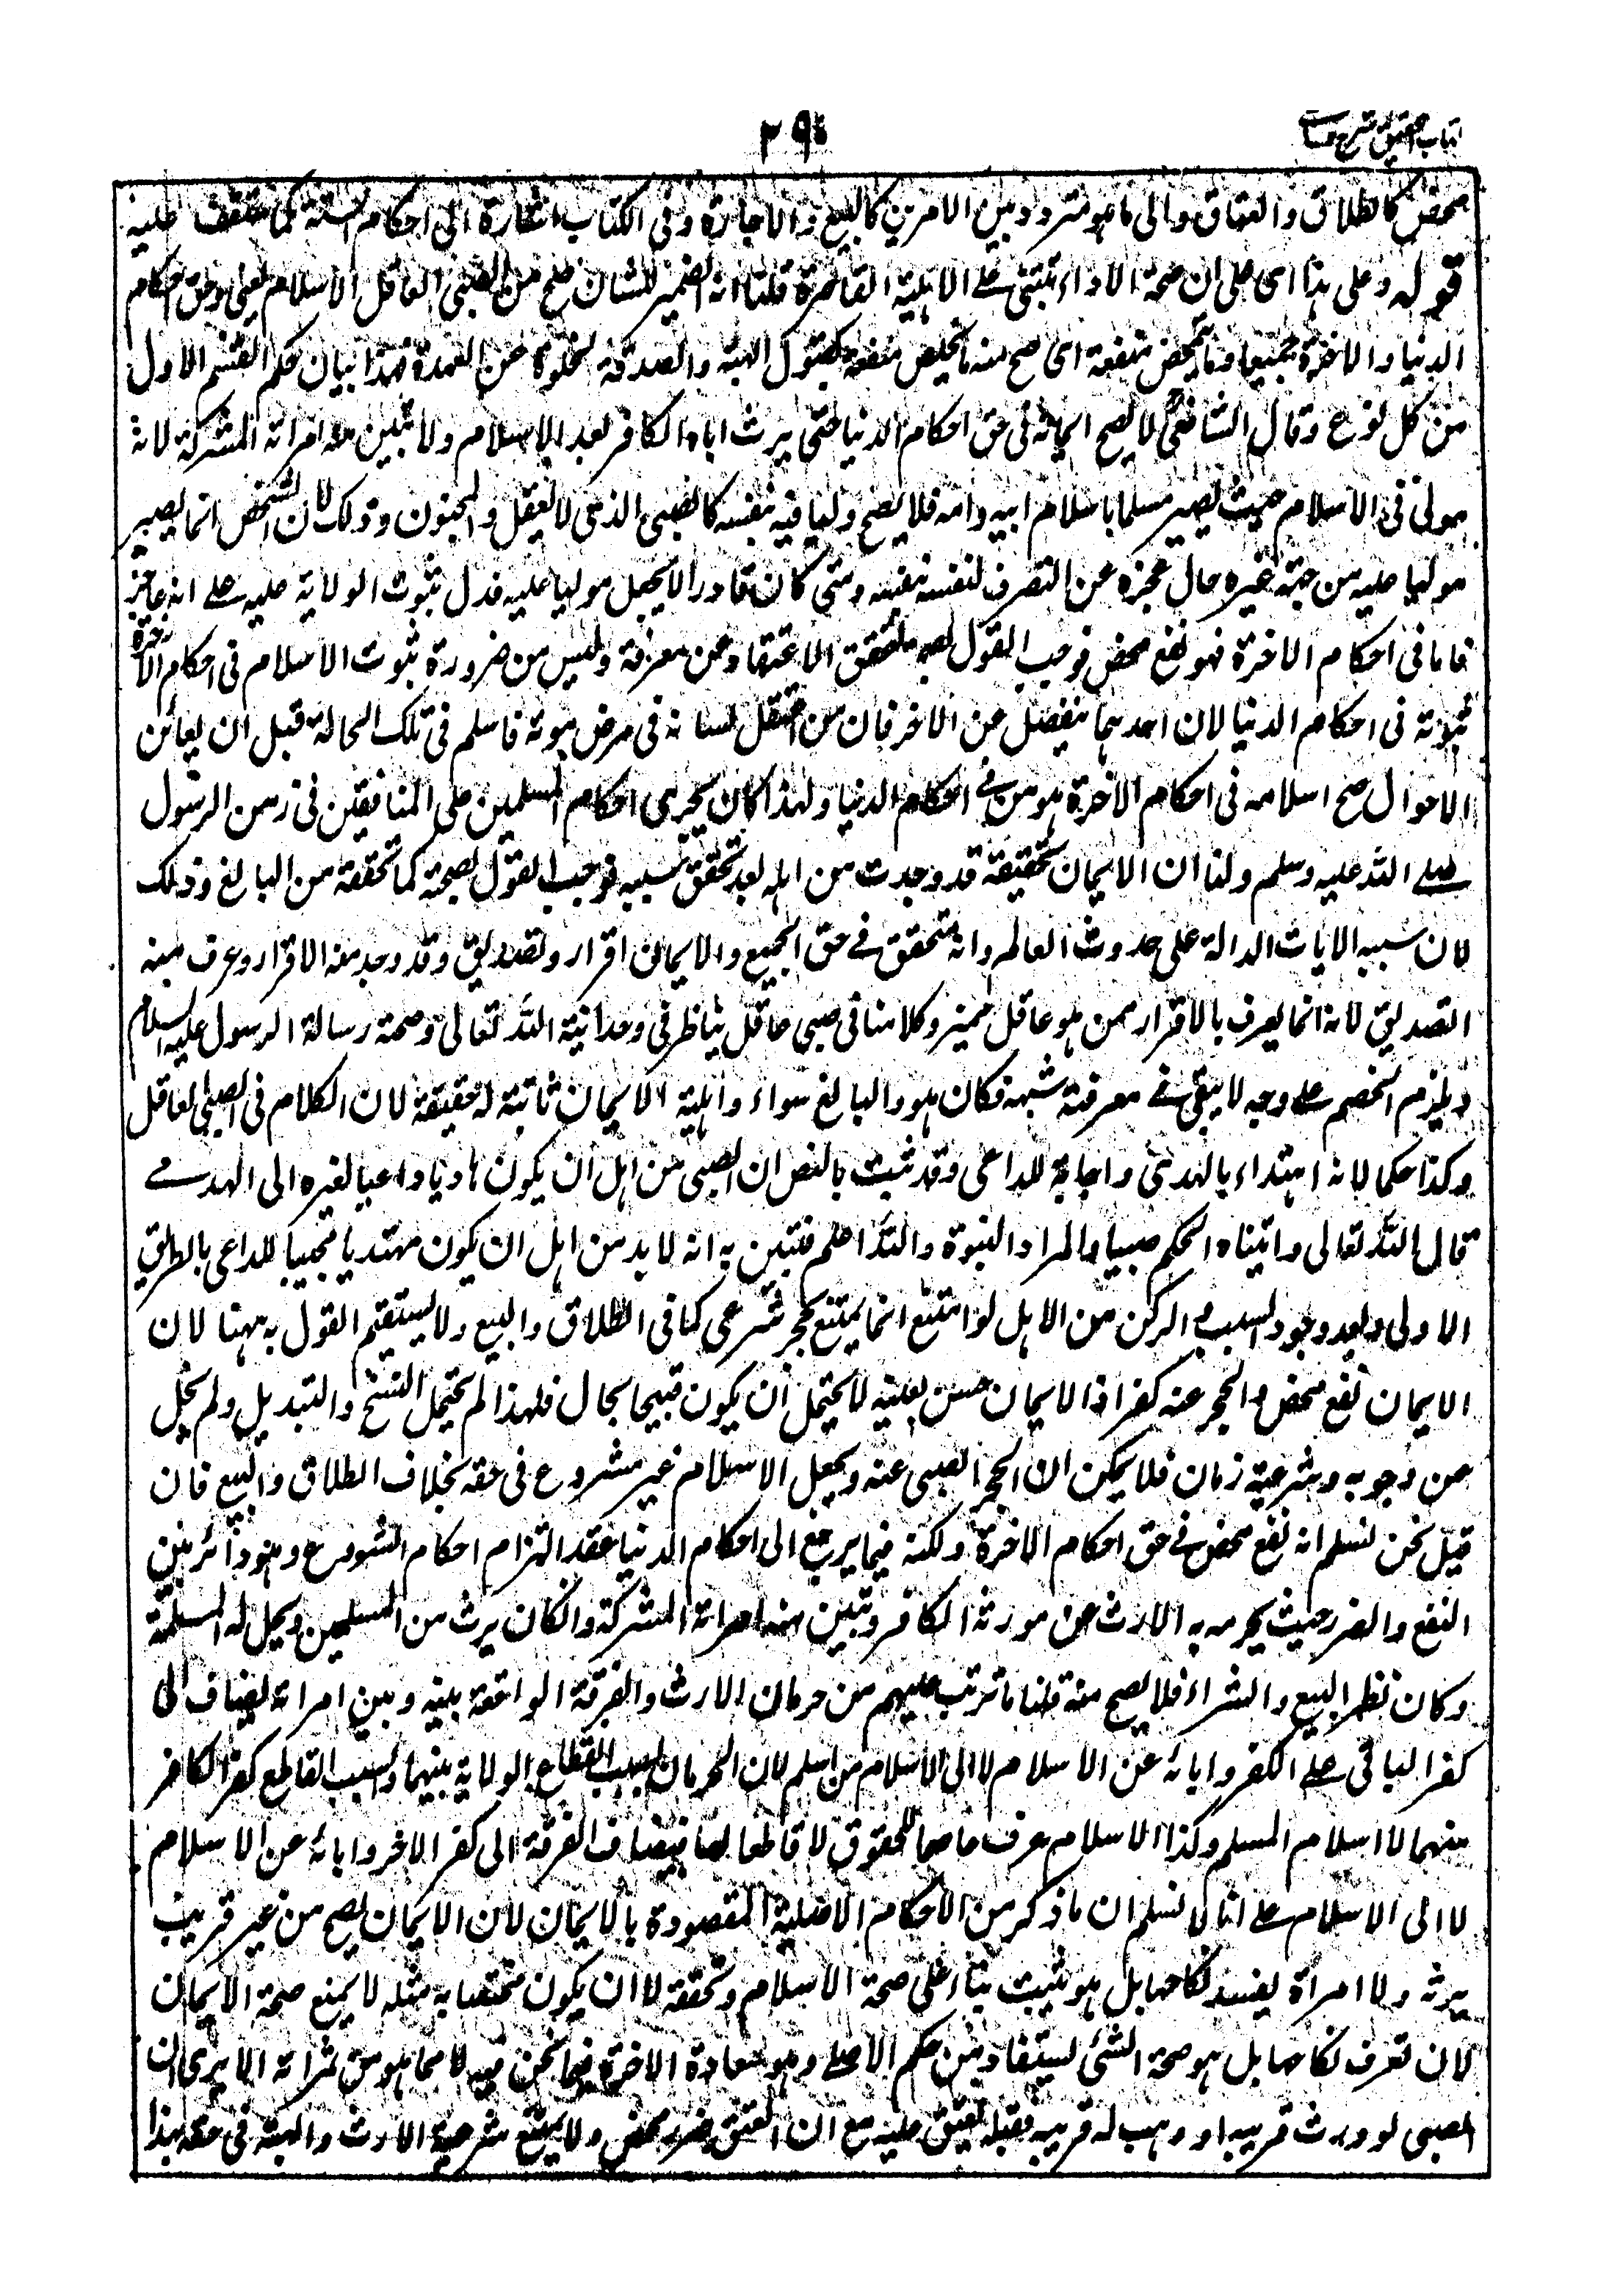 كتاب التحقيق شرح حسامي
٢٩٤
محض كالطلاق والعتاق والى ما هو متردد بين الامرين كالبيع والاجارة وفى الكتاب اشارة الى احكام الستة كما ستقف عليه
قوله وعلى هذا اى على ان صحة الاداء تبتنى على الاهلية القاصرة قلنا انه الضمير للشان صح من الصبى العاقل الاسلام يعنى فى حق احكام
الدنيا والاخرة جميعا وما يتمحض منفعة اى صح منه ما تخلص منفعة كقبول الهبة والصدقة لخلوه عن العهدة فهذا بيان حكم القسم الاول
من كل نوع وقال الشافعى لا يصح ايمانه فى حق احكام الدنيا حتى يرث اباه الكافر بعد الاسلام ولا تبين منه امراته المشركة لانه
مولى فى الاسلام حيث يصير مسلما باسلام ابيه وامه فلا يصح وليا فيه بنفسه كالصبى الذى لا يعقل والمجنون وذلك لان الشخص انما يصير
موليا عليه من جهة غيره حال عجزه عن التصرف لنفسه بنفسه ومتى كان قادرا لا يجعل موليا عليه فدل ثبوت الولاية عليه على انه عاجز
فاما فى احكام الاخرة فهو نفع محض فوجب القول لتحقق الاعتقاد عن معرفة وليس من ضرورة ثبوت الاسلام فى احكام الاخرة
ثبوته فى احكام الدنيا لان احدهما ينفصل عن الاخر فان من اعتقل لسانه فى مرض موته فاسلم فى تلك الحالة قبل ان يعائن
الاحوال صح اسلامه فى احكام الاخرة دون احكام الدنيا ولهذا كان يجرى احكام المسلمين على المنافقين فى زمن الرسول
صلى الله عليه وسلم ولنا ان الايمان بحقيقة قد وجدت من اهله بعد تحقق سببه فوجب القول بصحته كما تحققه من البالغ وذلك
لان سببه الايات الدالة على حدوث العالم وانه متحقق فى حق الجميع والايمان اقرار وتصديق وقد وجد منه الاقرار وعرف منه
التصديق لانه انما يعرف بالاقرار ممن هو عاقل مميز وكلامنا فى صبى عاقل يناظر فى وحدانية الله تعالى وصحة رسالة الرسول عليه السلام
ويلزم الخصم على وجه لا يبقى فى معرفته شبهة فكان هو والبالغ سواء واهلية الايمان ثابتة له حقيقة لان الكلام فى الصبى العاقل
وكذا حكما لانه اهتداء بالهدى واجابة للداعى وقد ثبت بالنص ان الصبى من اهل ان يكون هاديا داعيا لغيره الى الهدى
قال الله تعالى واتيناه الحكم صبيا والمراد النبوة والله اعلم فتبين به انه لا بد من اهل ان يكون مهتديا مجيبا للداعى بالطريق
الاولى وبعد وجود السبب الركن من الاهل لو امتنع انما يمتنع بحجر شرعى كما فى الطلاق والبيع ولا يستقيم القول به ههنا لان
الايمان نفع محض والحجر عنه كفر اذ الايمان حسن بعينه لا يحتمل ان يكون قبيحا بحال فلهذا لم يحتمل النسخ والتبديل ولم يخل
عن وجوبه وشرعيته زمان فلا يمكن ان الحجر الصبى عنه ويجعل الاسلام غير مشروع فى حقه بخلاف الطلاق والبيع فان
قيل نحن نسلم انه نفع محض فى حق احكام الاخرة ولكنه فيما يرجع الى احكام الدنيا عقد التزام احكام الشروع وهو دائر بين
النفع والضرر حيث يحرم به الارث عن مورثه الكافر وتبين منه امراته المشركة وان كان يرث من المسلمين ويحل له المسلمة
وكان نظير البيع والشراء فلا يصح منه قلنا ما ترتب عليهم من حرمان الارث والفرقة الواقعة بينه وبين امراته يضاف الى
كفر الباقى على الكفر وابائه عن الاسلام لا الى الاسلام من اسلم لان الحرمان بسبب انقطاع الولاية بينهما والسبب القاطع كفر الكافر
منهما لا اسلام المسلم وكذا الاسلام عرف عاصما للحقوق لا قاطعا لها فيضاف الفرقة الى كفر الاخر وابائه عن الاسلام
لا الى الاسلام على انا لا نسلم ان ما ذكر من الاحكام الاصلية المقصودة بالايمان لان الايمان يصح من غير قريب
يرثه ولا امراة يفسد نكاحها بل هو يثبت بناء على صحة الاسلام وتحققه لا ان يكون مختصا به مثله لا يمنع صحة الايمان
لان تعرف نكاحها بل هو صحة الشئ يستفاد من حكم الاصلى وهو سعادة الاخرة فيما نحن فيه لا مما هو من ثمراته الا يرى ان
الصبى لو ورث قريبه او وهب له قريبه فقبله يعتق عليه مع ان العتق ضرر محض ولا يمتنع شرعية الارث والهبة فى حقه بهذا